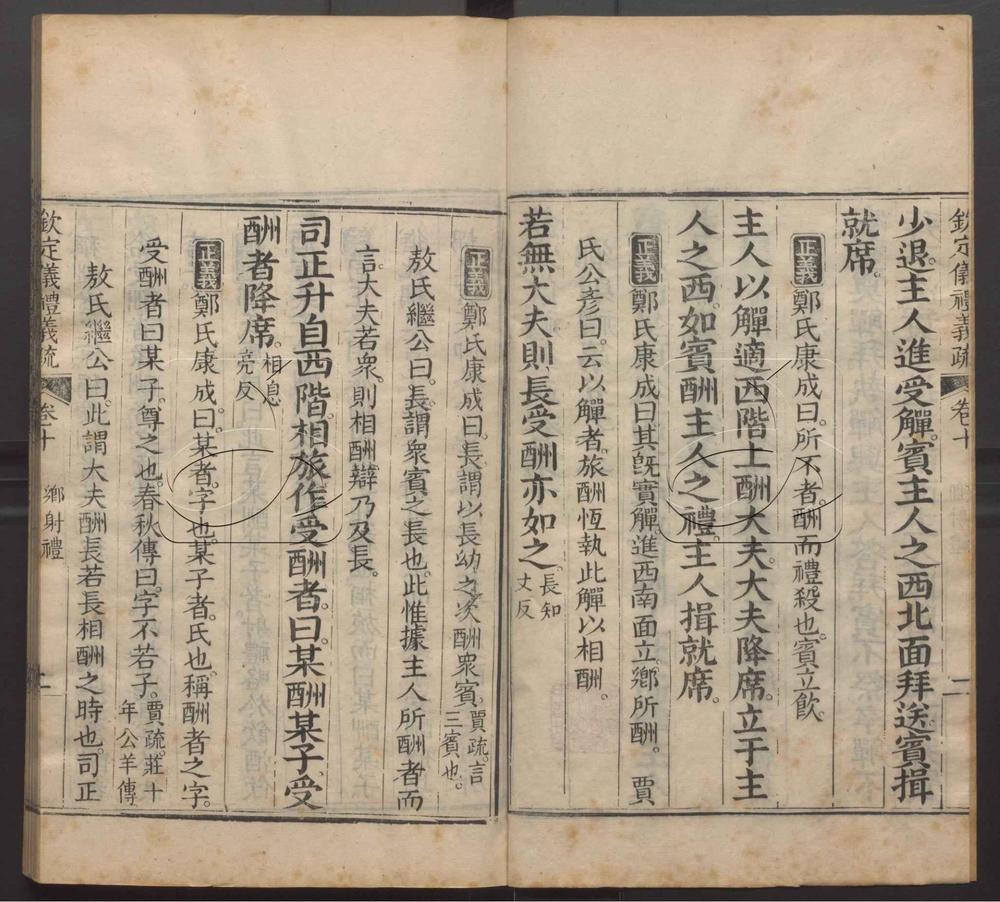 欽定儀禮義疏 卷十 二
少退。主人進受觶。賓主人之西北面拜送。賓揖
就席。
正義 鄭氏康成曰。所不者。酬而禮。殺也。賓立飲。
主人以觶適西階上酬大夫。大夫降席。立于主
人之西。如賓酬主人之禮。主人揖就席。
正義 鄭氏康成曰。其旣實觶。進西南面立。鄉所酬。 賈
氏公彥曰。云以觶者。旅酬恆執此觶以相酬。
若無大夫。則長受酬亦如之。長知丈反
正義 鄭氏康成曰。長謂以長幼之次酬衆賓。賈疏。言三賓也。
敖氏繼公曰。長謂衆賓之長也。此惟據主人所酬者而
言。大夫若衆。則相酬辯乃及長。
司正升自西階相旅。作受酬者。曰。某酬某子。受
酬者降席。相息亮反
正義 鄭氏康成曰。某者。字也。某子者。氏也。稱酬者之字。
受酬者曰某子。尊之也。春秋傳曰。字不若子。賈疏。莊十年公羊傳
敖氏繼公曰。此謂大夫酬長若長相酬之時也。司正
欽定儀禮義疏 卷十 鄉射禮